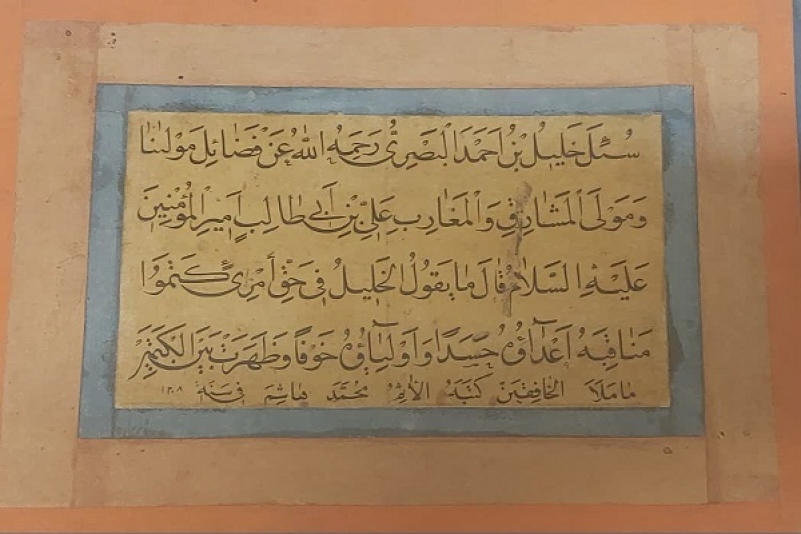 سُئِلَ خَلِيلُ بْنُ اَحْمَدَ الْبَصْرِيُّ رَحِمَهُ اللهُ عَنْ فَضَائِلِ مَوْلٰنَا
وَمَوْلَى الْمَشَارِقِ وَالْمَغَارِبِ عَلِيِّ بْنِ اَبِي طَالِبٍ اَمِيرِ الْمُؤْمِنِينَ
عَلَيْهِ السَّلَامُ قَالَ مَا يَقُولُ الْخَلِيلُ فِي حَقِّ اَمْرِئٍ كَتَمُوا
مَنَاقِبَهُ اَعْدَآؤُهُ حَسَدًا وَاَوْلِيَآؤُهُ خَوْفًا وَظَهَرَتْ بَيْنَ الْكَتْمَيْنِ
مَا مَلَاَ الْخَافِقَيْنِ كَتَبَهُ الْاٰثِمُ مُحَمَّد هَاشِم فِي سَنَة ١٢٠٨